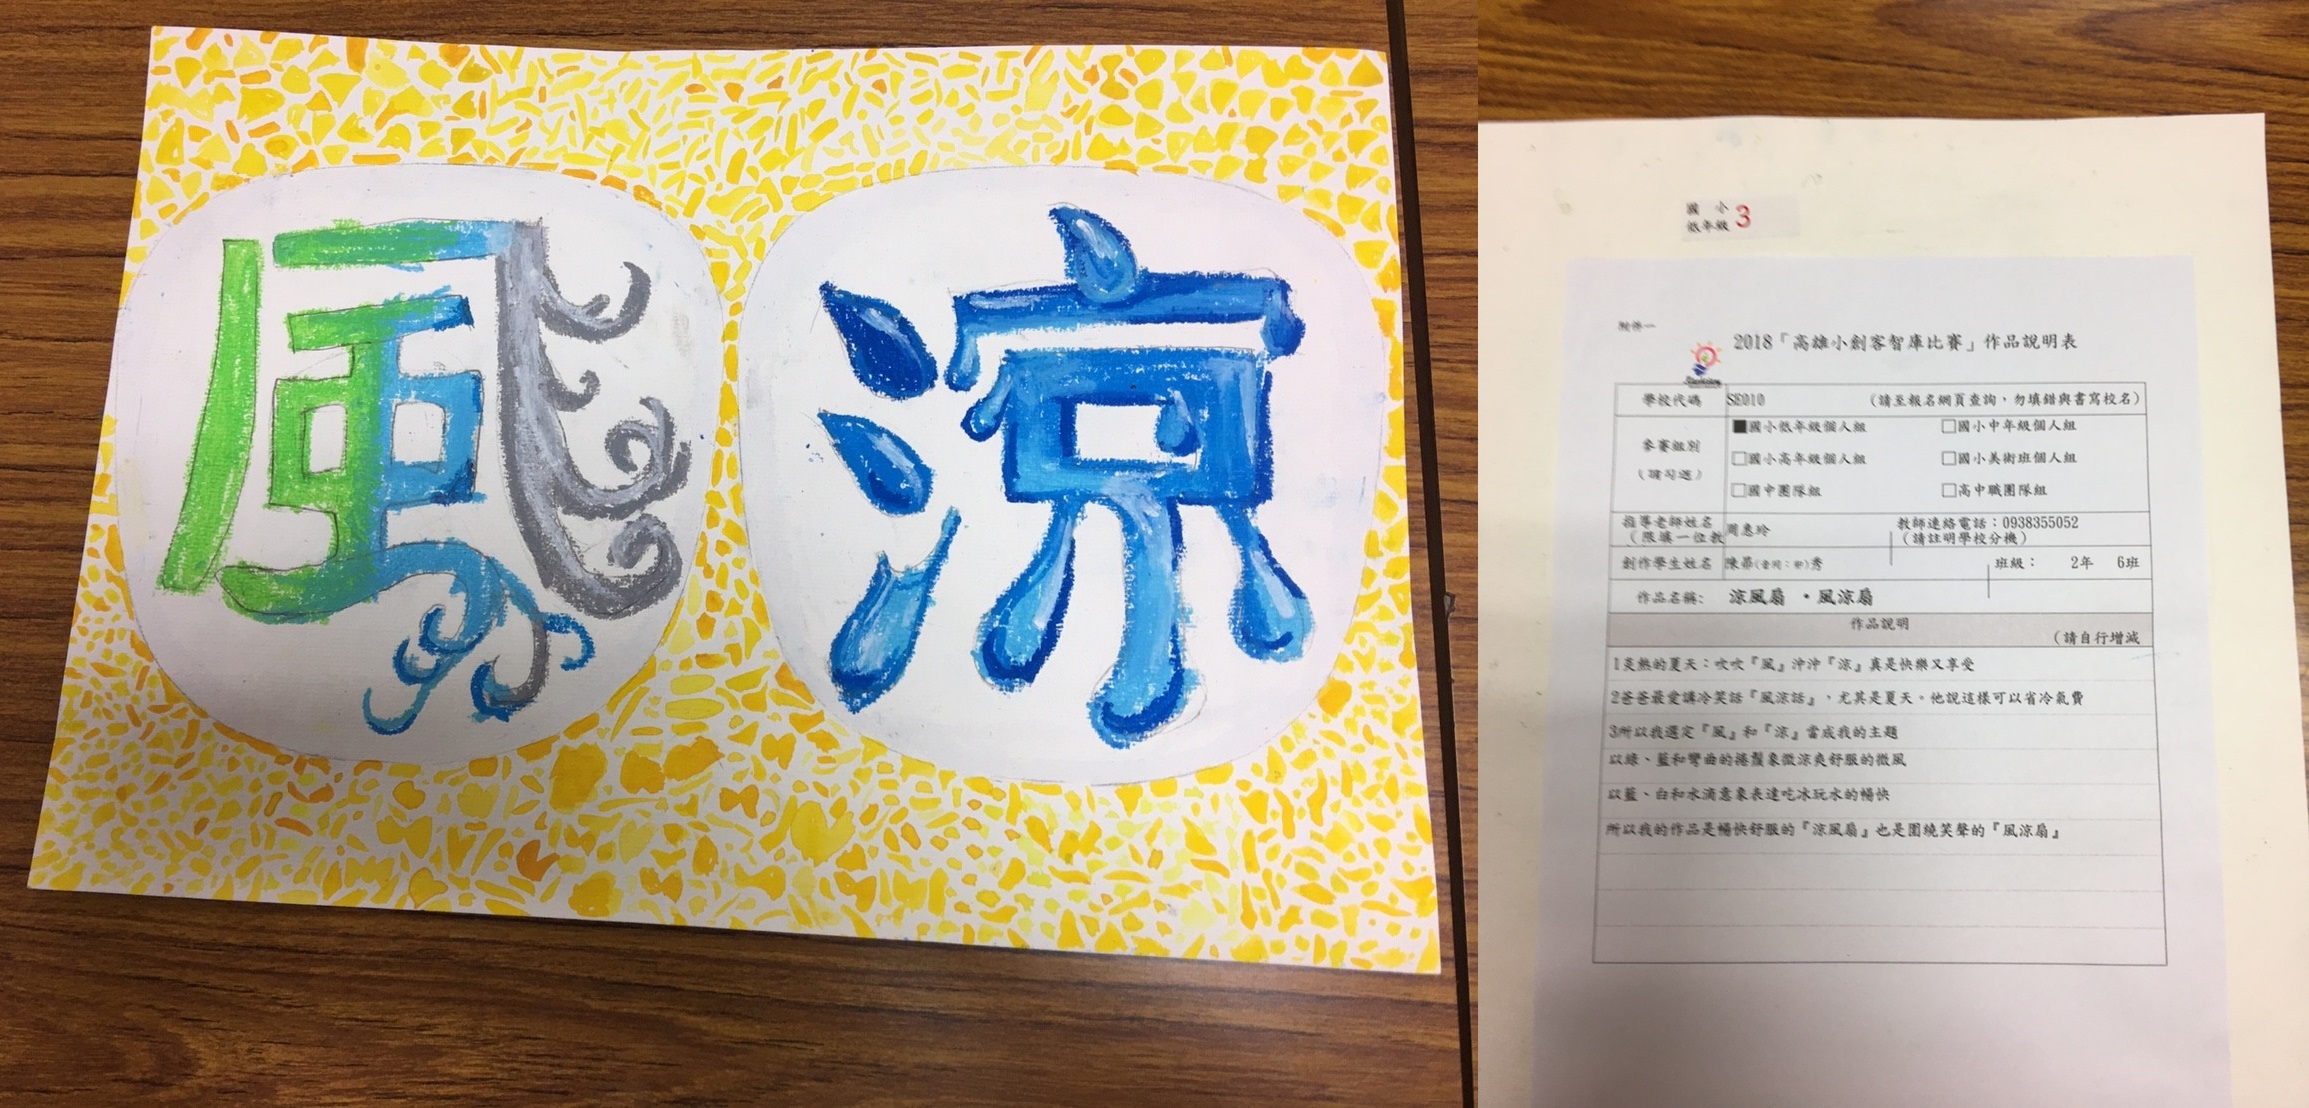 風涼
國小
低年級 3
附件一
2018「高雄小創客智庫比賽」作品說明表
學校代碼 SE010 (請至報名網頁查詢，勿填錯與書寫校名)
參賽組別
(請勾選)
■國小低年級個人組 □國小中年級個人組
□國小高年級個人組 □國小美術班個人組
□國中團隊組 □高中職團隊組
指導老師姓名 周惠玲 教師連絡電話：0938355052
(限填一位教 (請註明學校分機)
創作學生姓名 陳昴(音同：卯)秀 班級： 2年 6班
作品名稱: 涼風扇 ·風涼扇
作品說明
(請自行增減
1炎熱的夏天：吹吹『風』沖沖『涼』真是快樂又享受
2爸爸最愛講冷笑話『風涼話』，尤其是夏天。他說這樣可以省冷氣費
3所以我選定『風』和『涼』當成我的主題
以綠、藍和彎曲的捲鬚象徵涼爽舒服的微風
以藍、白和水滴意象表達吃冰玩水的暢快
所以我的作品是暢快舒服的『涼風扇』也是圍繞笑聲的『風涼扇』